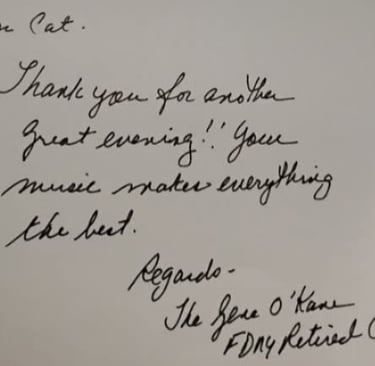 Cat.
Thank you for another
great evening!! Your
music makes everything
the best.
Regards-
The Gene O'Kane
FDNY Retired